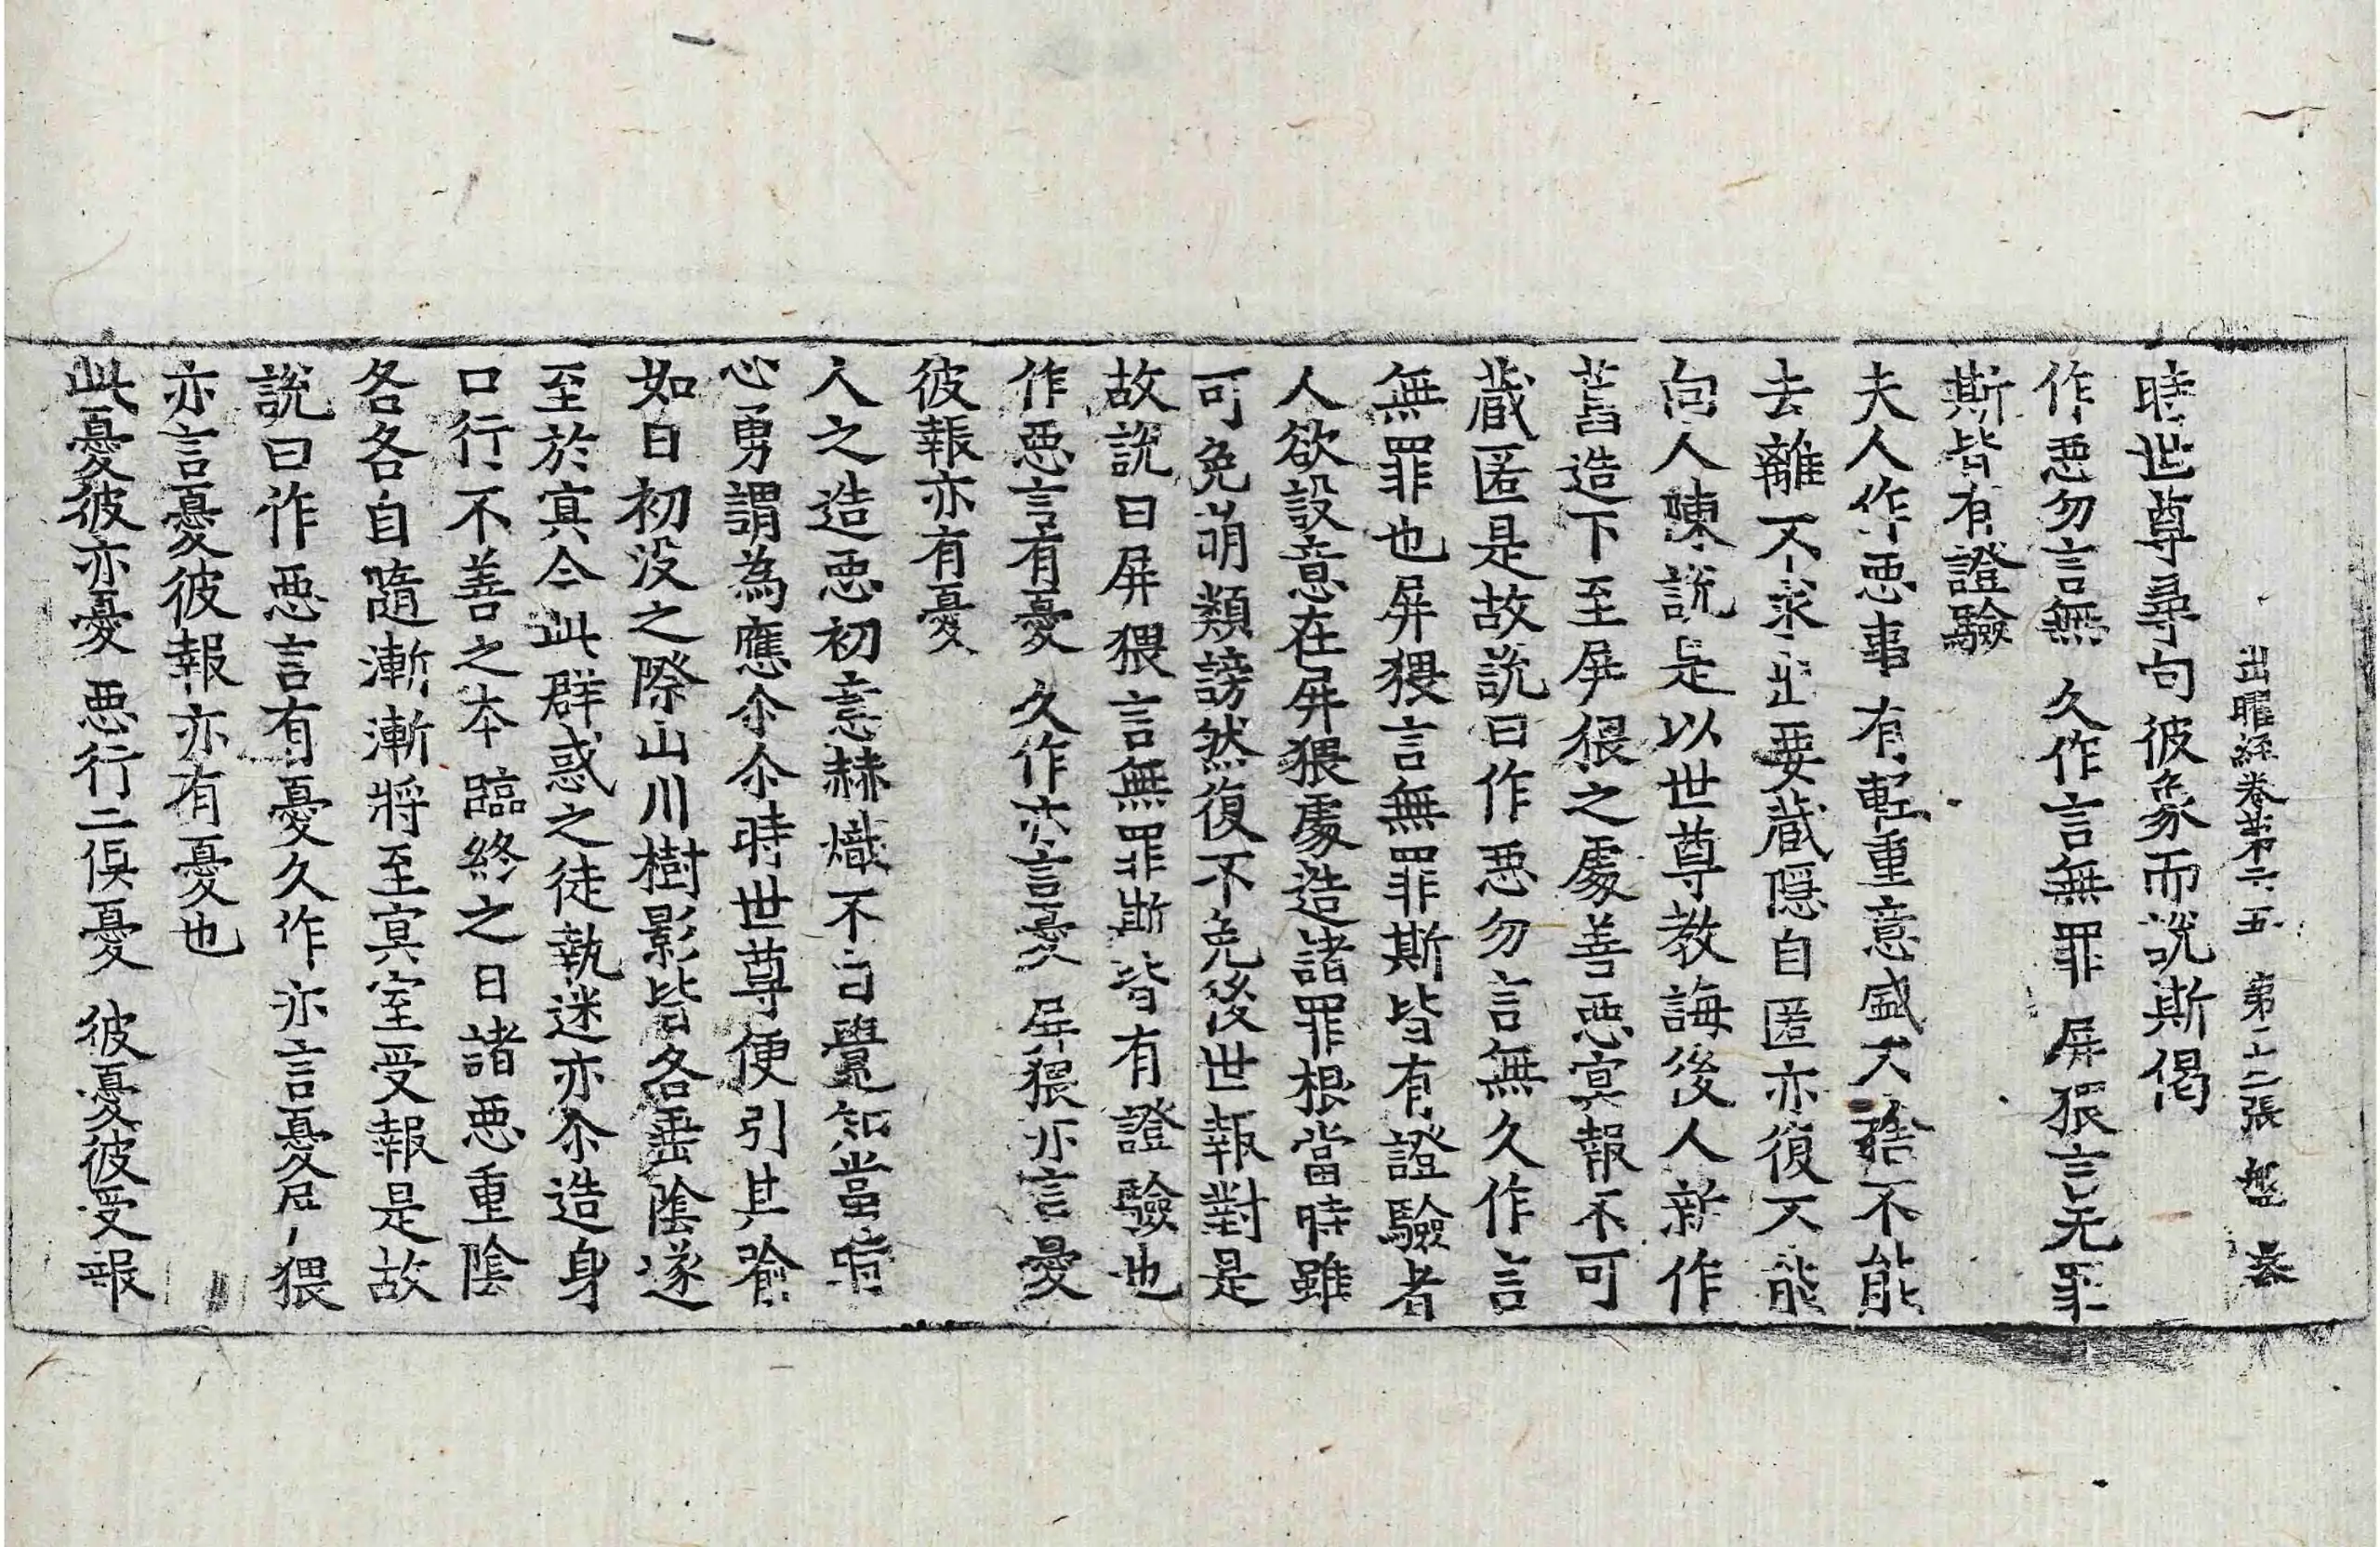 出曜経卷苐二五 苐二十二張 盤
時世尊尋句彼象而說斯偈
作惡勿言無 久作言無罪 屏猥言无罪
斯皆有證驗
夫人作惡事有輕重意盛不捨不能
去離不求出要藏隱自匿亦復不能
向人陳說是以世尊教誨後人新作
舊造下至屏猥之處善惡冥報不可
藏匿是故說曰作惡勿言無久作言
無罪也屏猥言無罪斯皆有證驗者
人欲設意在屏猥處造諸罪根當時雖
可免萌類謗然復不免後世報對是
故說曰屏猥言無罪斯皆有證驗也
作惡言有憂 久作亦言憂 屏猥亦言憂
彼報亦有憂
人之造惡初意赫熾不自覺知當時
心勇謂為應尒尒時世尊便引其喻
如日初没之際山川樹影皆各垂陰遂
至於冥今此群惑之徒執迷亦尒造身
口行不善之本臨終之日諸惡重陰
各各自隨漸漸將至冥室受報是故
說曰作惡言有憂久作亦言憂屏猥
亦言憂彼報亦有憂也
此憂彼亦憂 惡行二俱憂 彼憂彼受報